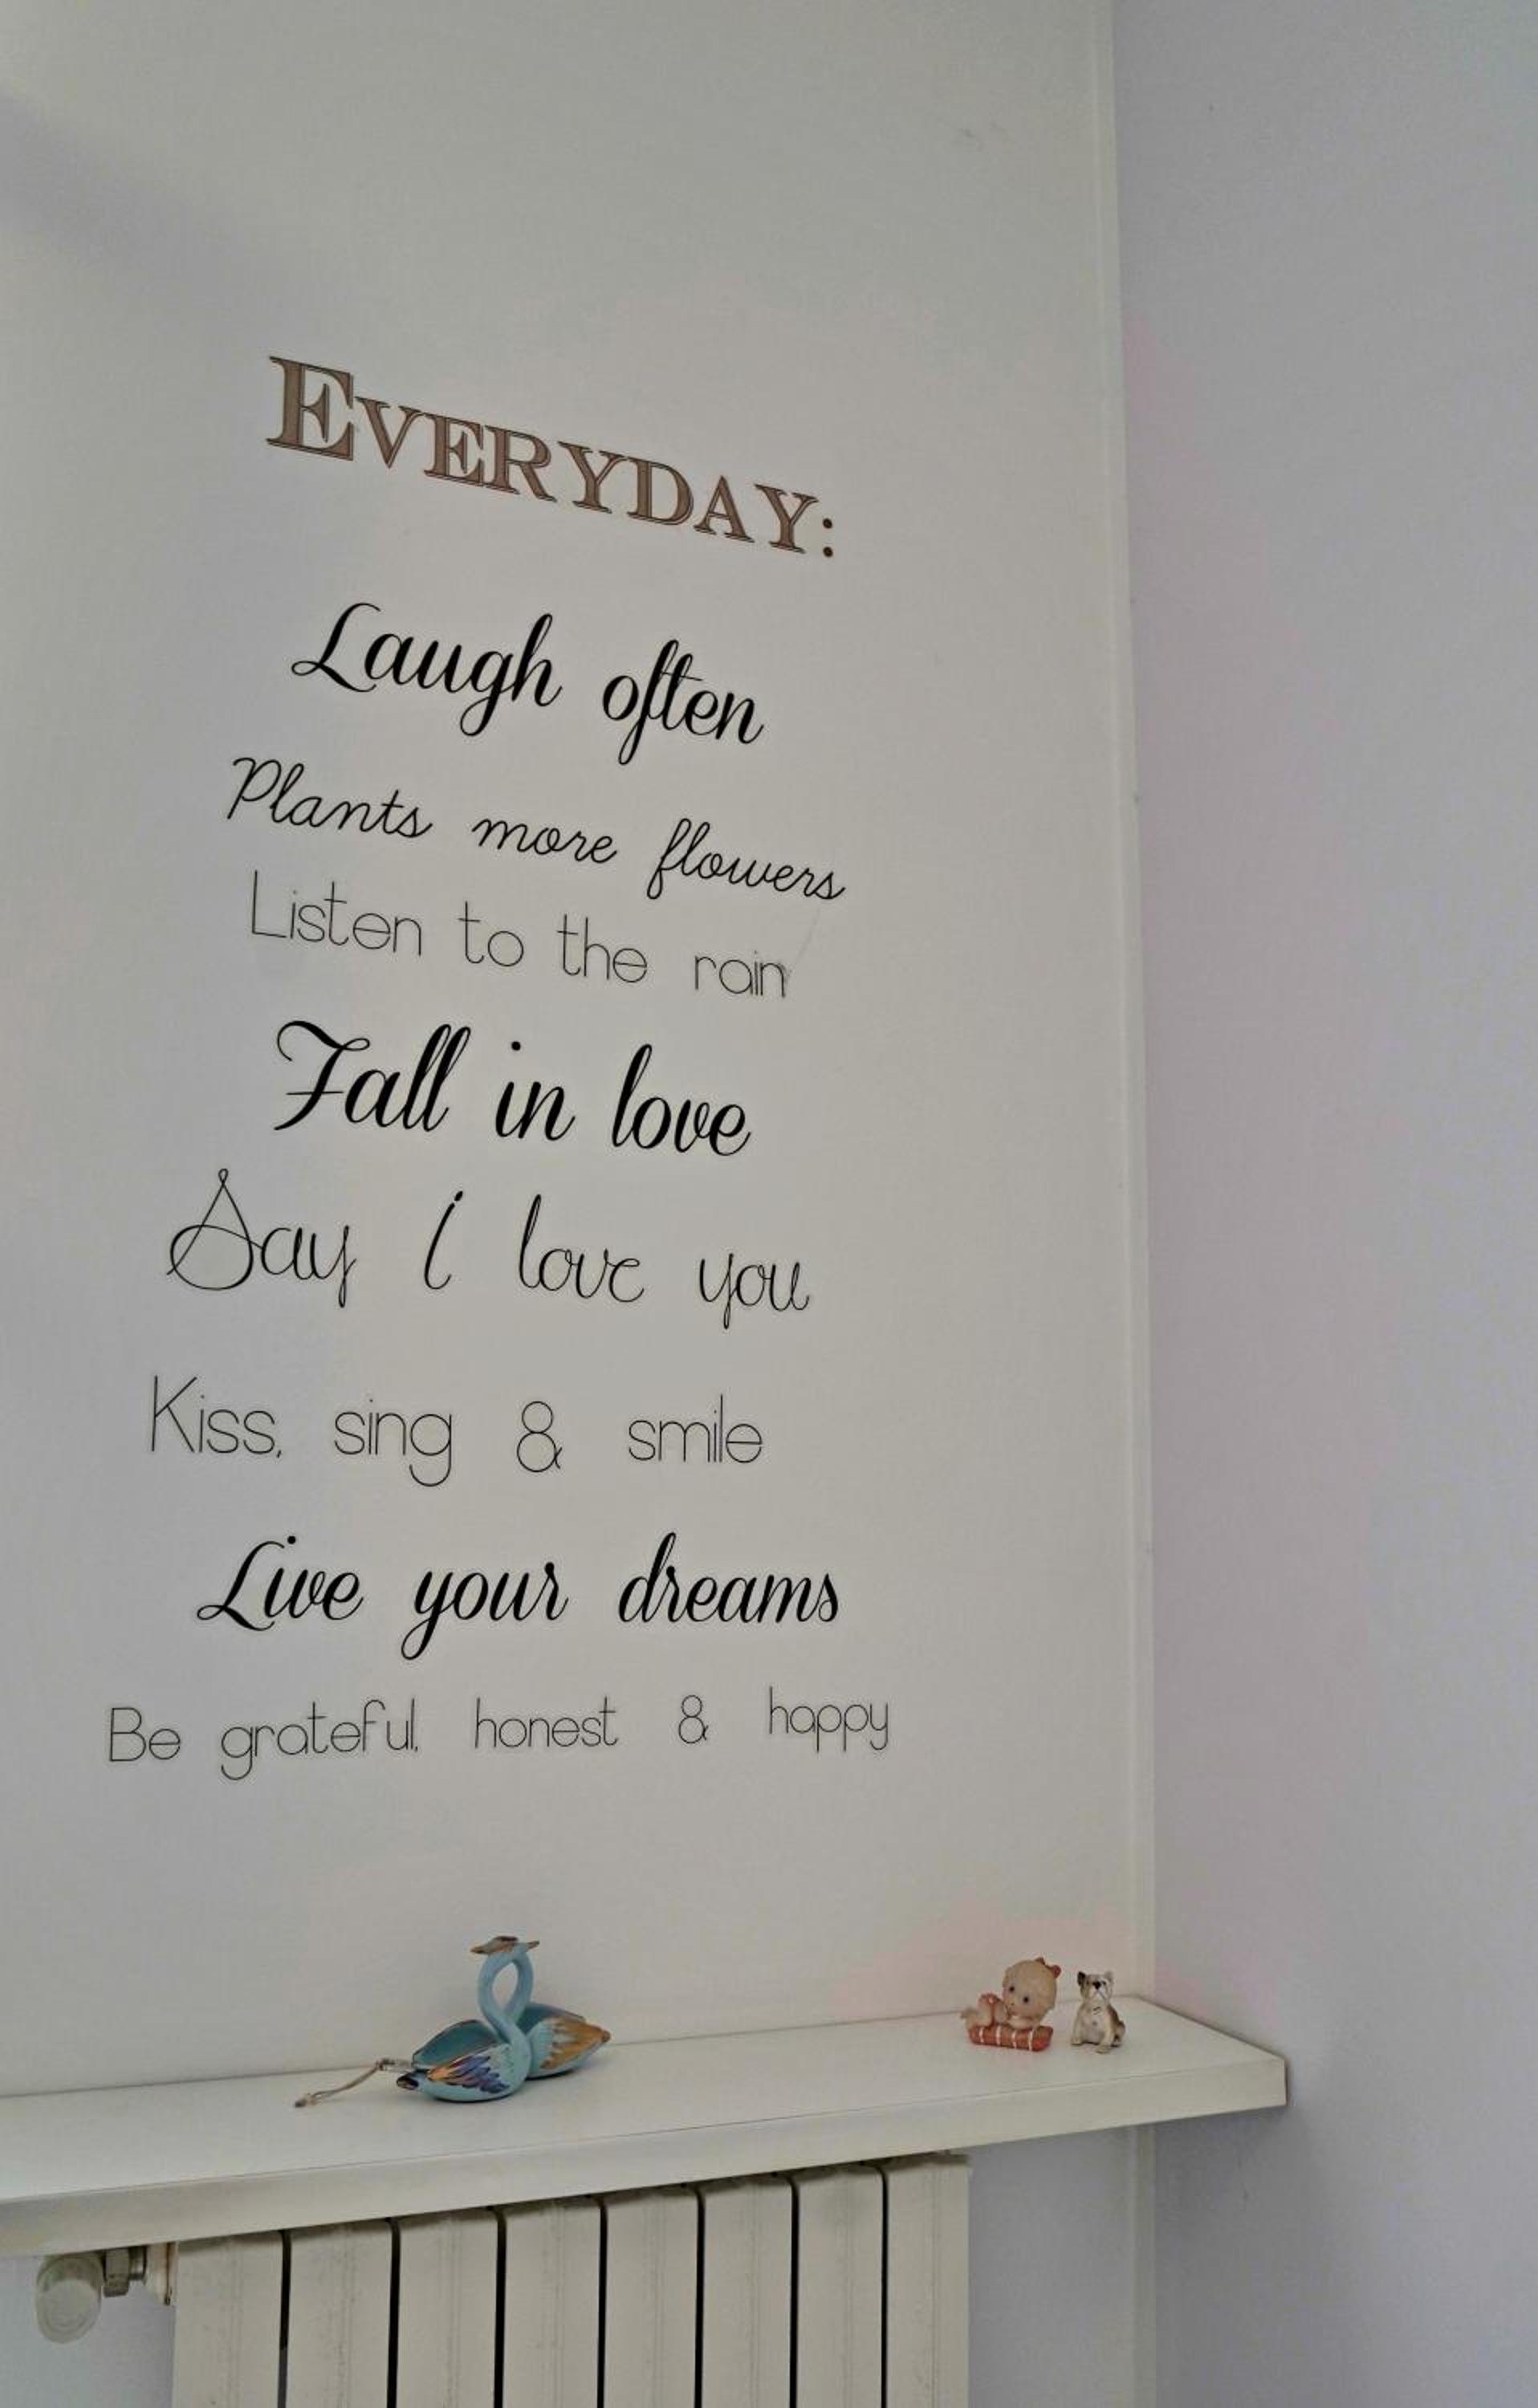 EVERYDAY:
Laugh often
Plants more flowers
Listen to the rain
Fall in love
Say i love you
Kiss, sing & smile
Live your dreams
Be grateful, honest & happy